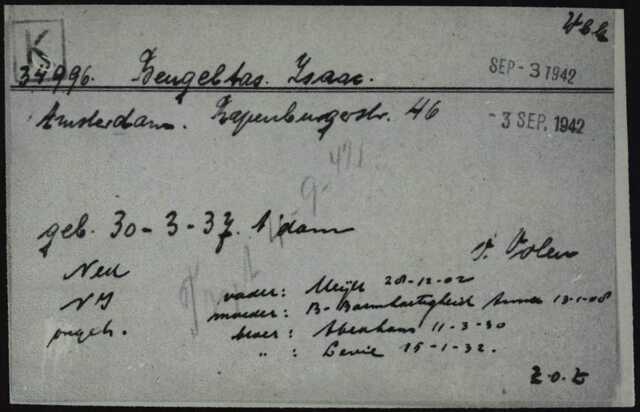 K
34996. Beugeltas. Isaac.
SEP - 3 1942
Amsterdam. Rapenburgerstr. 46
- 3 SEP. 1942
geb. 30-3-37. A'dam
Ned
NI
ongeh.
vader: Meijer 28-12-02
moeder: B- Barmhartigheid Anna 13-1-08
broer: Abraham 11-3-30
" : Levie 15-1-32.
z.o.z